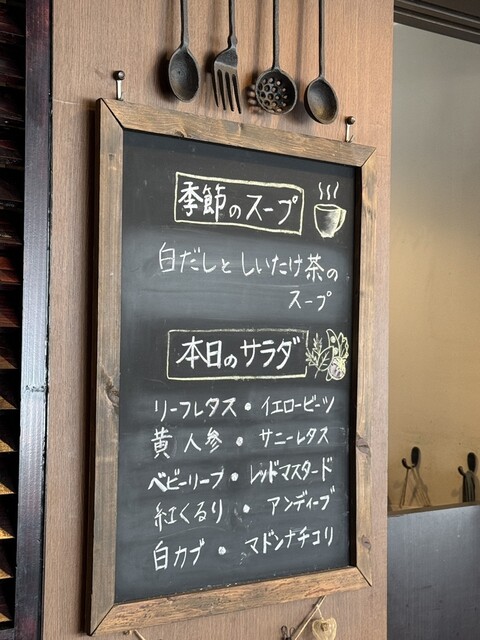 季節のスープ
白だしと しいたけ茶の
スープ
本日のサラダ
リーフレタス・イエロービーツ
黄人参・サニーレタス
ベビーリーブ・レッドマスタード
紅くるり・アンディーブ
白カブ・マドンナチコリ